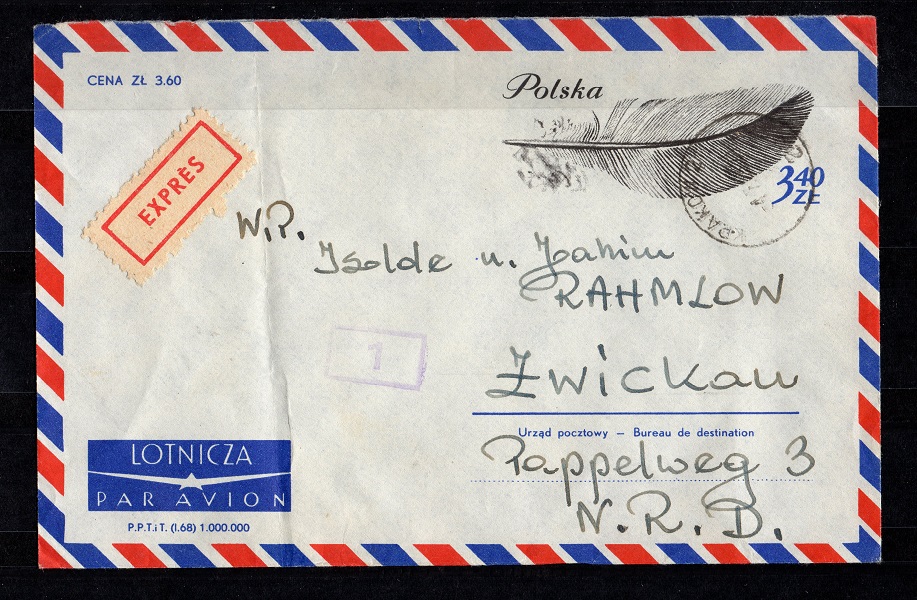 CENA ZŁ 3.60
Polska
3 40 ZŁ
EXPRÈS
W.P.
Isolde u. Joahim
RAHMLOW
1
Zwickau
Urząd pocztowy — Bureau de destination
Pappelweg 3
N.R.D.
LOTNICZA
PAR AVION
P.P.T.i T. (I.68) 1.000.000